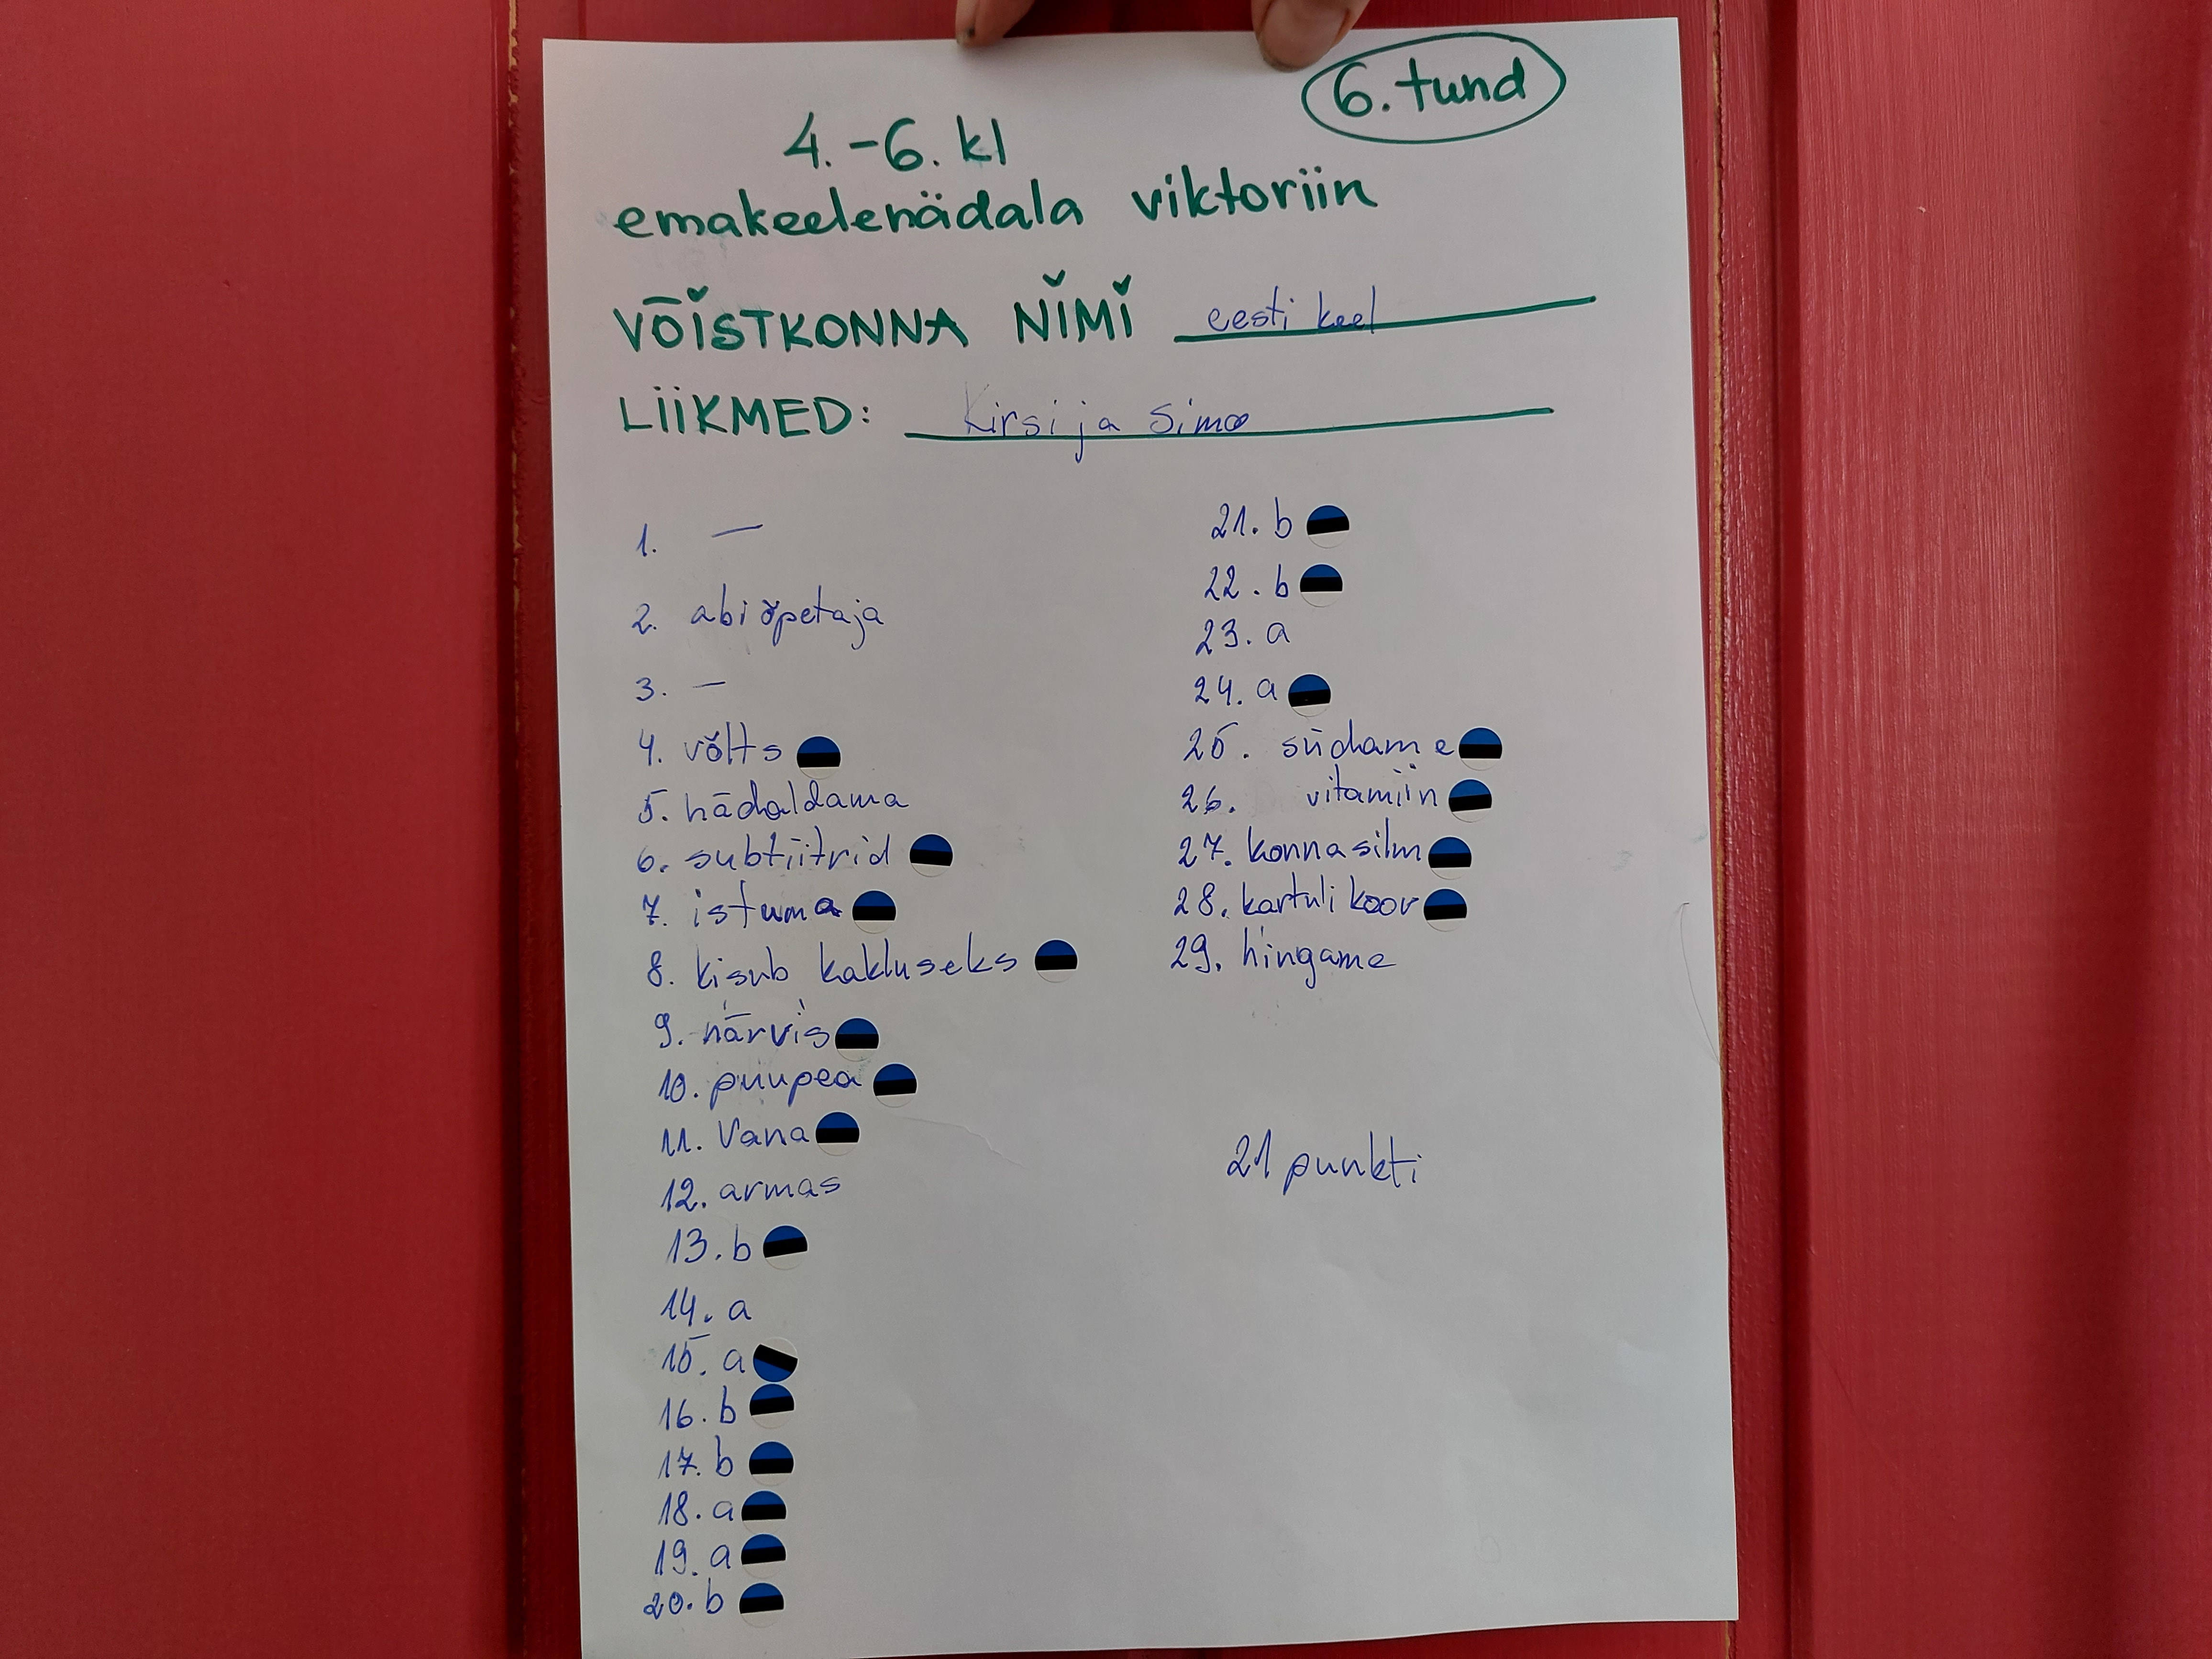 6. tund
4.-6. kl
emakeelenädala viktoriin
VÕISTKONNA NIMI eesti keel
LIIKMED: Kirsi ja Simo
1. —
2. abiõpetaja
3. —
4. võlts
5. nädaldama
6. subtiitrid
7. istuma
8. kisub kakluseks
9. närvis
10. puupea
11. Vana
12. armas
13. b
14. a
15. a
16. b
17. b
18. a
19. a
20. b
21. b
22. b
23. a
24. a
25. südame
26. vitamiin
27. konnasilm
28. kartuli koor
29. hingame
21 punkti